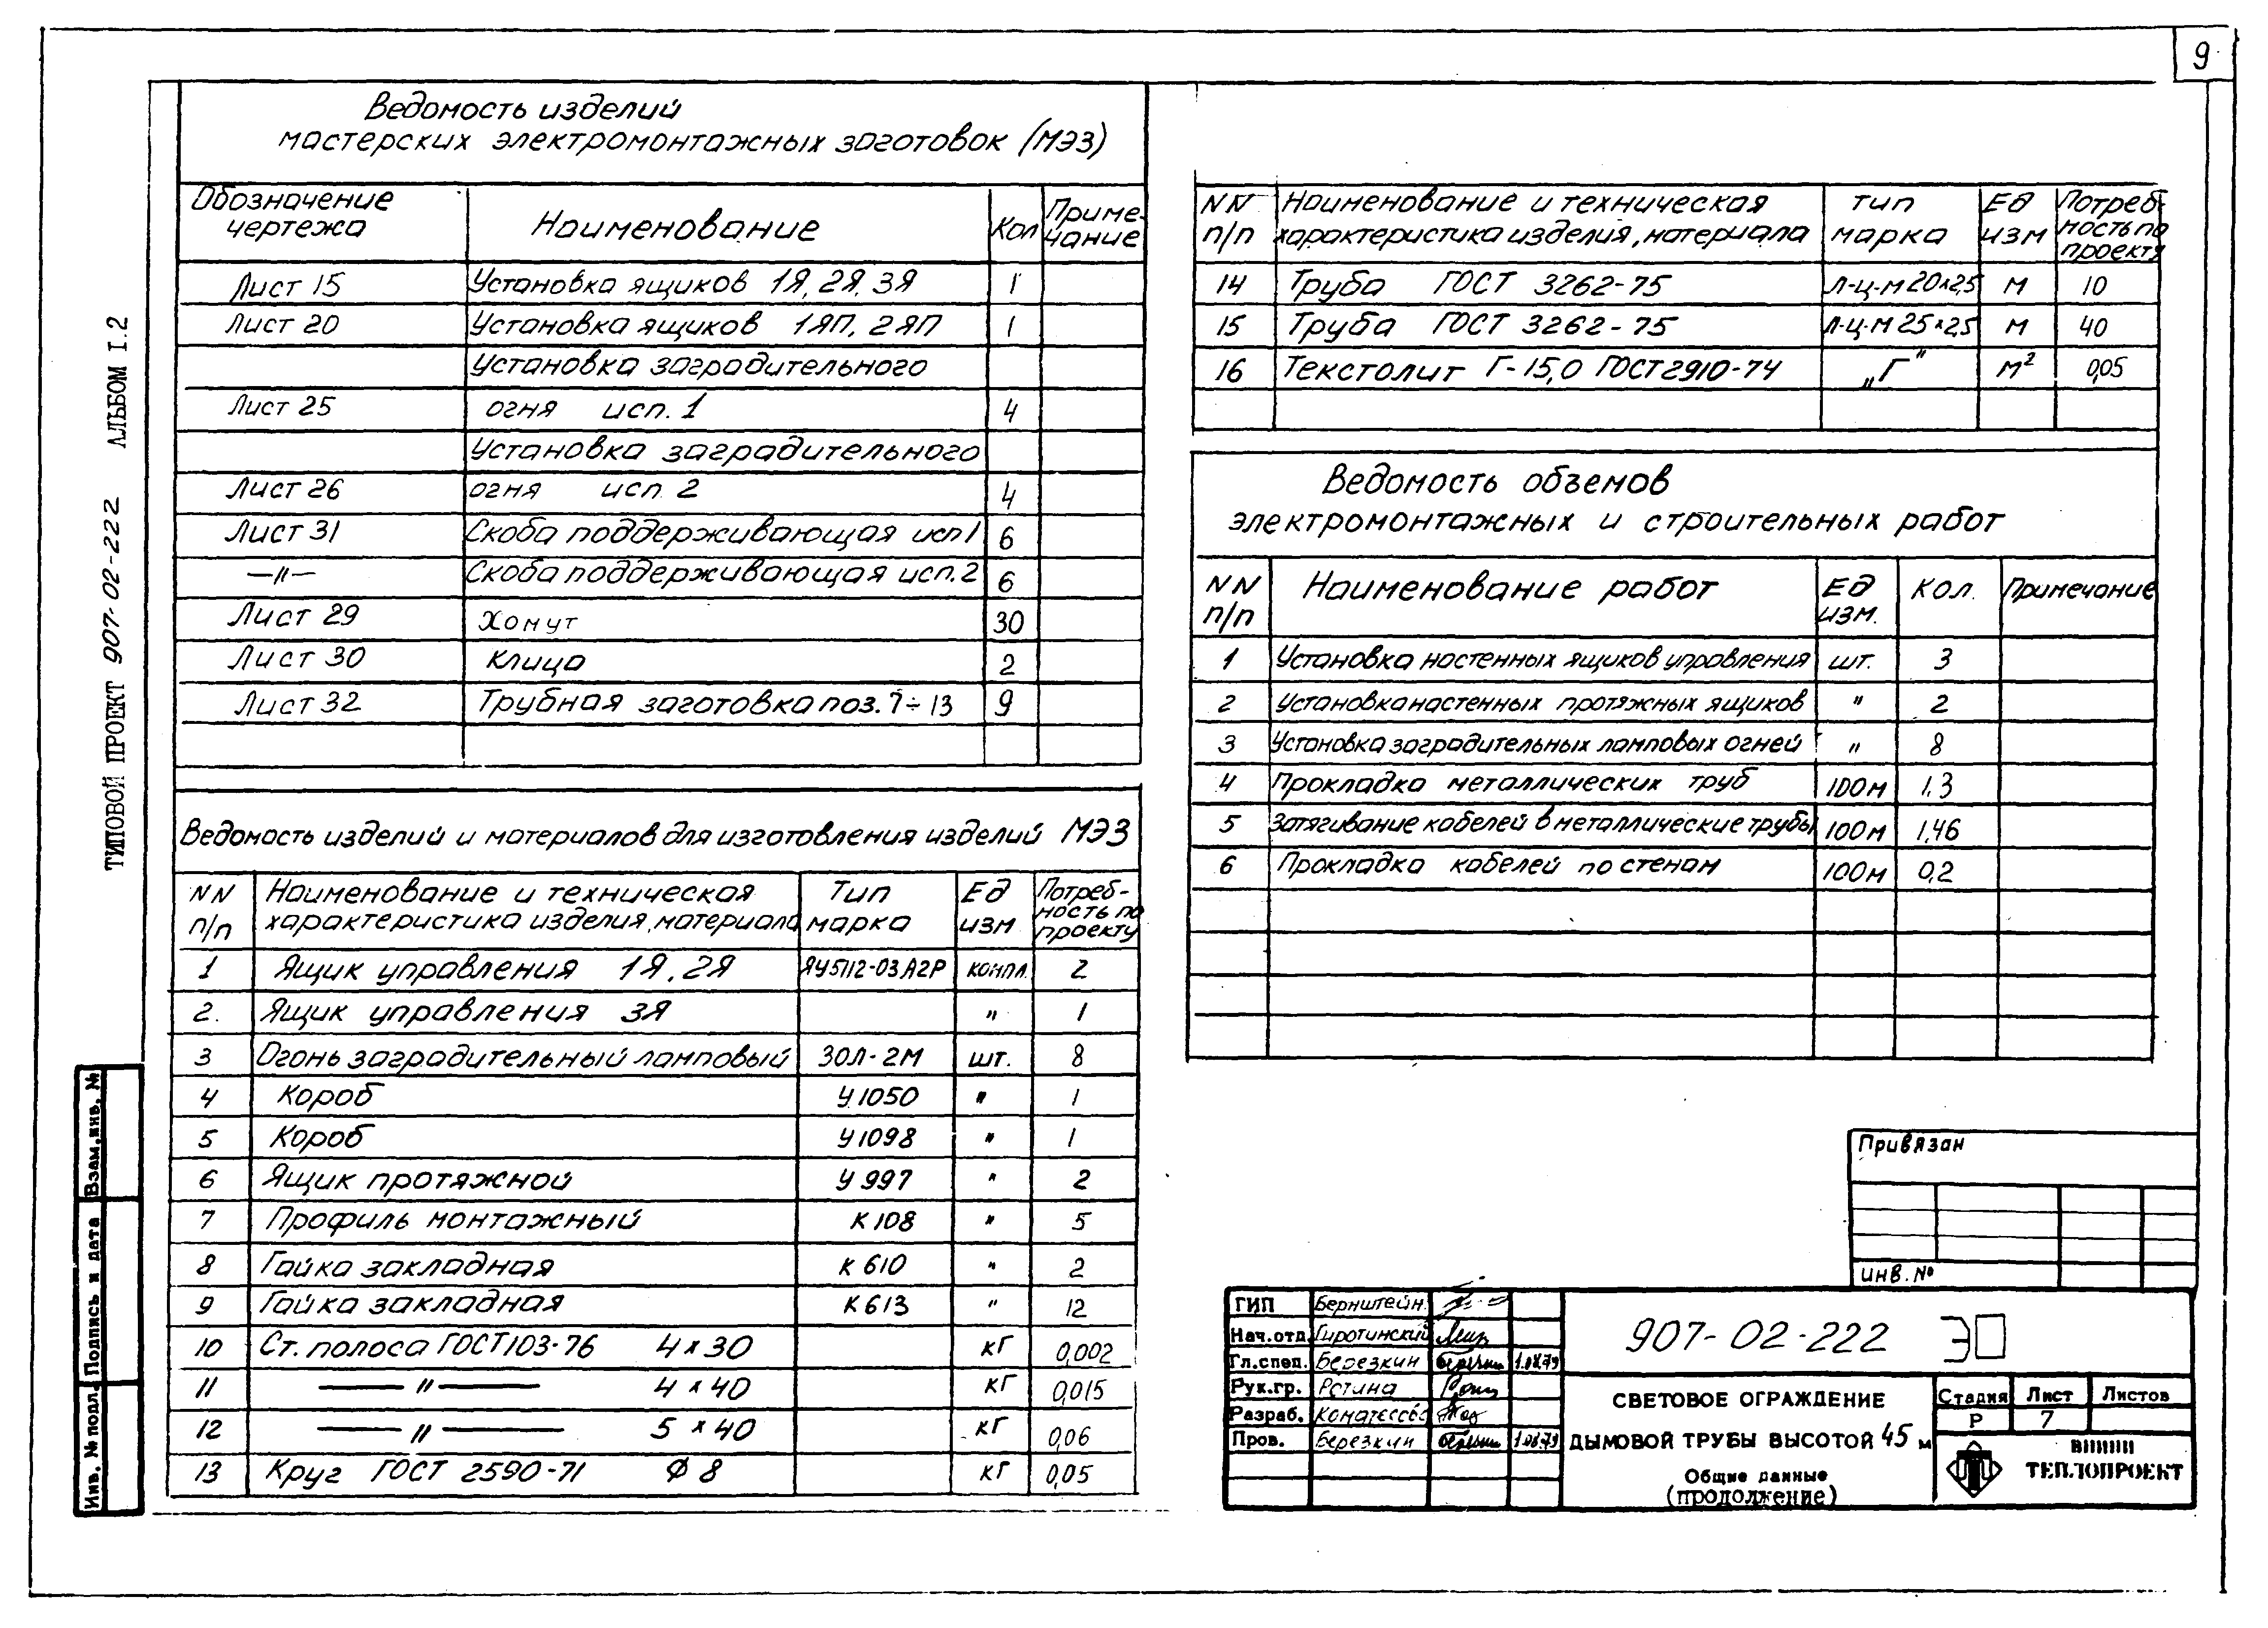 9
ТИПОВОЙ ПРОЕКТ 907-02-222 АЛЬБОМ I.2
Ведомость изделий
мастерских электромонтажных заготовок (МЭЗ)
Обозначение чертежа Наименование Кол Примечание
Лист 15 Установка ящиков 1Я, 2Я, 3Я 1
Лист 20 Установка ящиков 1ЯП, 2ЯП 1
Установка заградительного
Лист 25 огня исп. 1 4
Установка заградительного
Лист 26 огня исп. 2 4
Лист 31 Скоба поддерживающая исп 1 6
—"— Скоба поддерживающая исп. 2 6
Лист 29 Хомут 30
Лист 30 Клица 2
Лист 32 Трубная заготовка поз. 7÷13 9
Ведомость изделий и материалов для изготовления изделий МЭЗ
NN п/п Наименование и техническая характеристика изделия, материала Тип марка Ед изм Потребность по проекту
1 Ящик управления 1Я, 2Я ЯУ5112-03А2Р компл. 2
2. Ящик управления 3Я " 1
3 Огонь заградительный ламповый ЗОЛ-2М шт. 8
4 Короб У1050 " 1
5 Короб У1098 " 1
6 Ящик протяжной У997 " 2
7 Профиль монтажный К108 " 5
8 Гайка закладная К610 " 2
9 Гайка закладная К613 " 12
10 Ст. полоса ГОСТ103-76 4х30 кг 0,002
11 —"— 4х40 кг 0,015
12 —"— 5х40 кг 0,06
13 Круг ГОСТ 2590-71 Ф8 кг 0,05
NN п/п Наименование и техническая характеристика изделия, материала тип марка Ед изм Потребность по проекту
14 Труба ГОСТ 3262-75 Л-Ц-М 20х2,5 м 10
15 Труба ГОСТ 3262-75 Л-Ц-М 25х2,5 м 40
16 Текстолит Г-15,0 ГОСТ2910-74 „Г" м² 0,05
Ведомость объемов
электромонтажных и строительных работ
NN п/п Наименование работ Ед изм. Кол. Примечание
1 Установка настенных ящиков управления шт. 3
2 Установка настенных протяжных ящиков " 2
3 Установка заградительных ламповых огней " 8
4 Прокладка металлических труб 100м 1,3
5 Затягивание кабелей в металлические трубы 100м 1,46
6 Прокладка кабелей по стенам 100м 0,2
Привязан
инв. №
ГИП Бернштейн
Нач.отд. Гиротинский
Гл.спец. Березкин 1.08.79
Рук.гр. Ротина
Разраб.
Пров. Березкин 1.08.79
907-02-222 Э
СВЕТОВОЕ ОГРАЖДЕНИЕ
ДЫМОВОЙ ТРУБЫ ВЫСОТОЙ 45 м
Общие данные
(продолжение)
Стадия Лист Листов
Р 7
ВНИПИ
ТЕПЛОПРОЕКТ
Инв. № подл. Подпись и дата Взам.инв. №